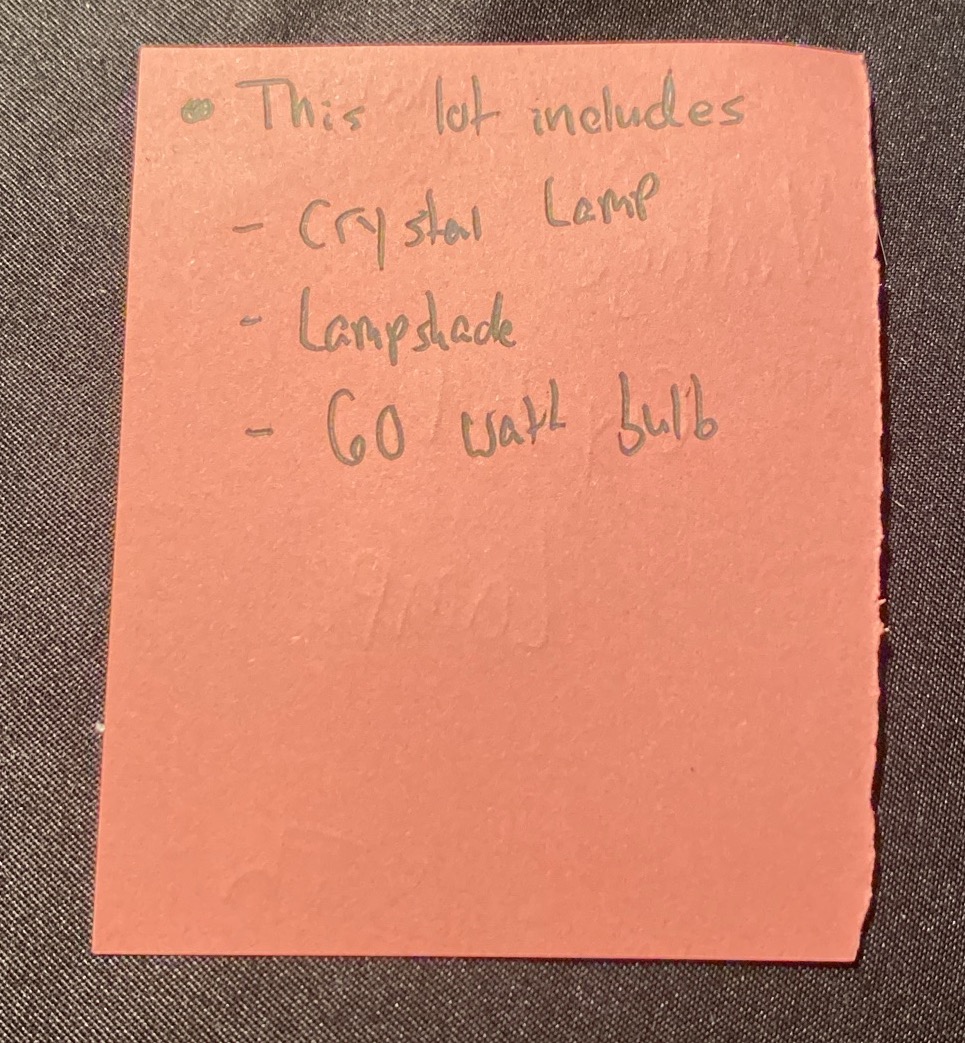 • This lot includes
- Crystal Lamp
- Lampshade
- 60 watt bulb